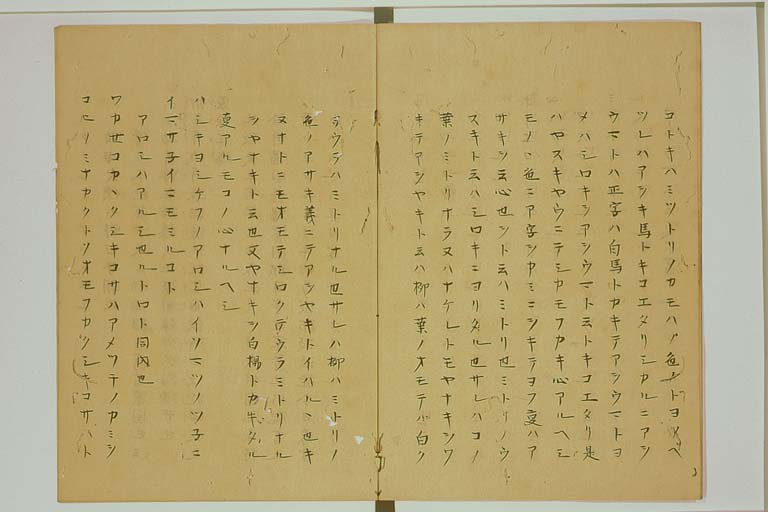 コトキハミツトリノカモハノ色トヨメヘ
ツレハアシキ馬トキコエタリシカルニアシ
ウマトハ正字ハ白馬トカキテアシウマトヨ
メハシロキヲアシウマト云トキコエタリ是
ハヤスキヤウニテシカモフカキ心アルヘシ
モノヽ色ニア字シカミニツキテヨフ事ハア
サキヲ云心也ソト云ハミトリ也ミトリノウ
スキト云ハシロキニヨリタル也サレハコノ
葉ノミトリナラヌハナケレトモヤナキヲワ
キテアシヤキト云ハ柳ハ葉ノオモテハ白ク
テウラハミトリナル也サレハ柳ハミトリノ
色ノアサキ義ニテアシヤキトイハルヽ也キ
ヌオトニモオモテシロクテウラミトリナル
ヲヤナキト云也又ヤナキヲ白楊トカキタル
事アルモコノ心ナルヘシ
ハシキヨシケフノアロシハイソマツノツ子ニ
イマサ子イマモミルコト
アロシハアルシ也ルトロト同内也
ワカセコカカクシキコサハアメツチノカミヲ
コヒノミナカクトソオモフカクシキコサハト